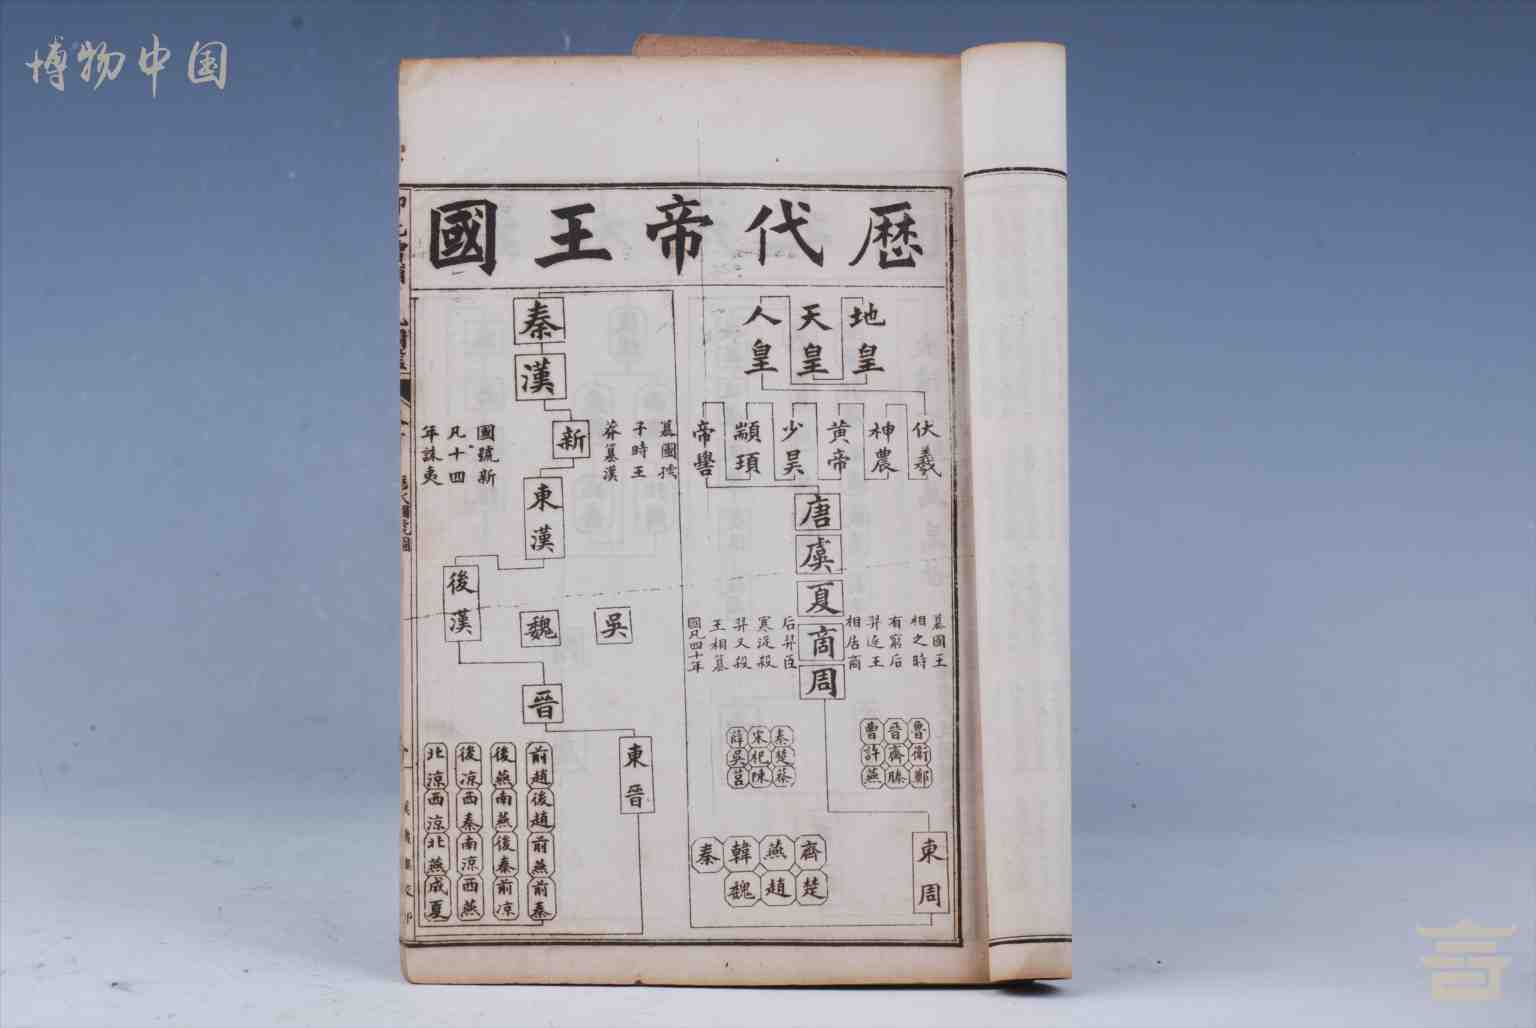 博物中国
歷代帝王國
地皇
天皇
人皇
伏羲
神農
黄帝
少昊
顓頊
帝嚳
唐
虞
夏
商
周
篡國王
相之時
有窮后
羿逐王
相居商
后羿臣
寒浞殺
羿又殺
王相篡
國凡四十年
魯衛鄭
晉齊滕
曹許燕
秦楚蔡
宋杞陳
薛吳莒
東周
齊楚
燕趙
韓魏
秦
秦
漢
新
篡國孺
子時王
莽篡漢
國號新
凡十四
年誅夷
東漢
後漢
魏
吳
晉
東晉
前趙後趙前燕前秦
後燕南燕後秦前凉
後凉西秦南凉西燕
北凉西凉北燕成夏